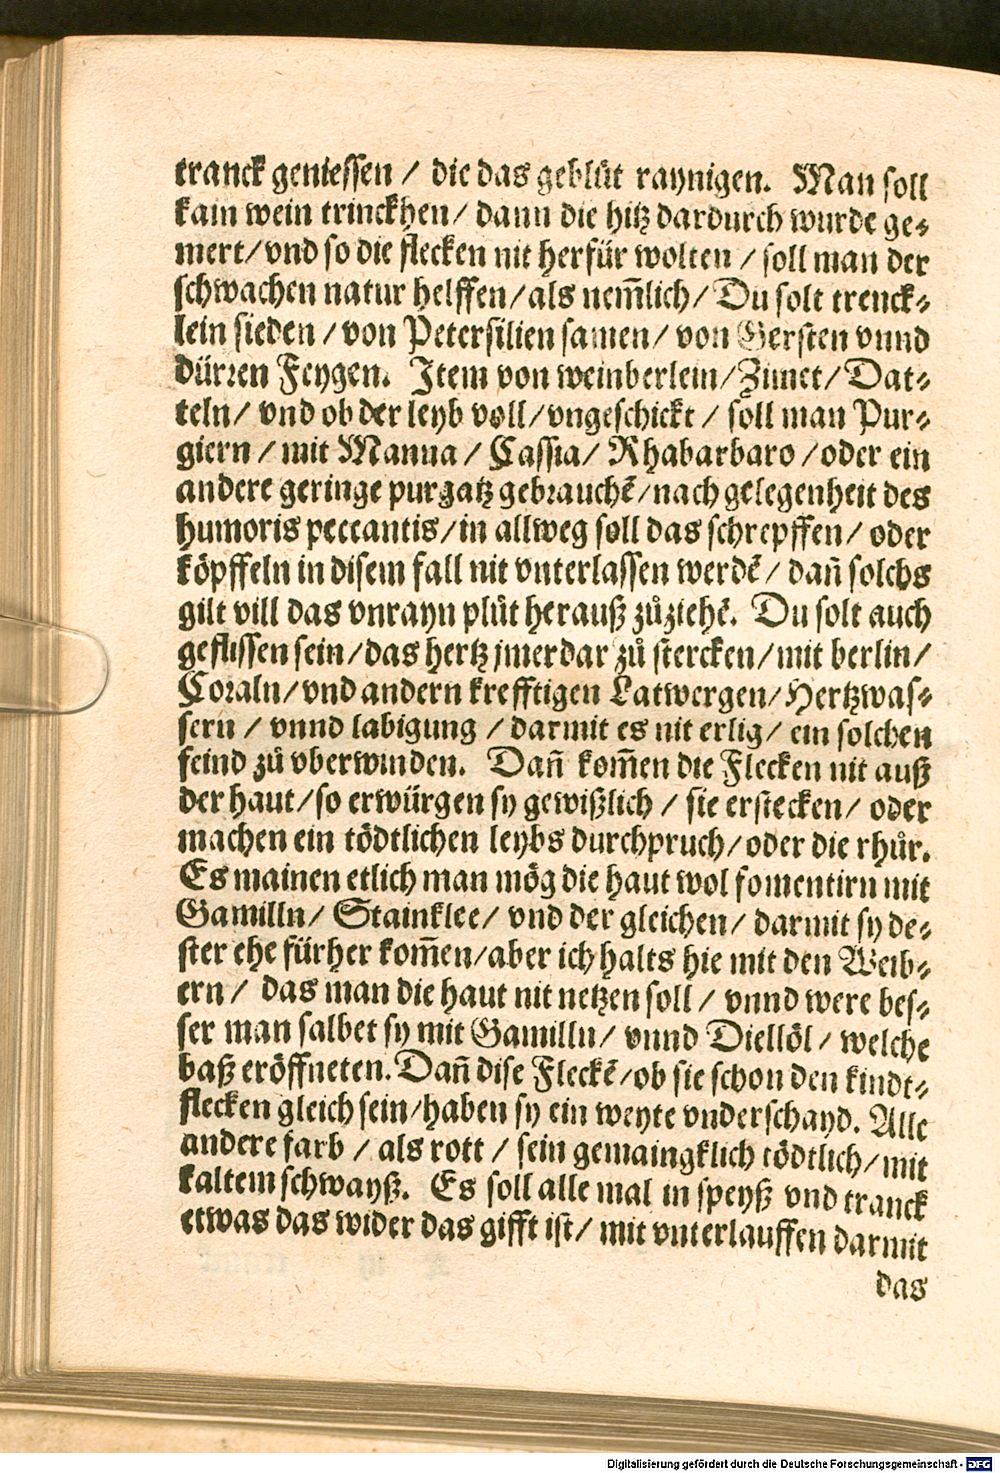 tranck geniessen / die das geblůt raynigen. Man soll
kain wein trinckhen / dann die hitz dardurch wurde ge⸗
mert / vnd so die flecken nit herfür wolten / soll man der
schwachen natur helffen / als nem̃lich / Du solt trenck⸗
lein sieden / von Petersilien samen / von Gersten vnnd
dürren Feygen. Item von weinberlein / Zimet / Dat⸗
teln / vnd ob der leyb voll / vngeschickt / soll man Pur⸗
giern / mit Manna / Cassia / Rhabarbaro / oder ein
andere geringe purgatz gebrauchẽ / nach gelegenheit des
humoris peccantis / in allweg soll das schrepffen / oder
köpffeln in disem fall nit vnterlassen werdẽ / dañ solchs
gilt vill das vnrayn plůt herauß zůziehẽ. Du solt auch
geflissen sein / das hertz jmerdar zů stercken / mit berlin /
Coraln / vnd andern krefftigen Latwergen / Hertzwas⸗
sern / vnnd labigung / darmit es nit erlig / ein solchen
feind zů vberwinden. Dañ kom̃en die Flecken nit auß
der haut / so erwürgen sy gewißlich / sie erstecken / oder
machen ein tödtlichen leybs durchpruch / oder die rhůr.
Es mainen etlich man mög die haut wol fomentirn mit
Gamilln / Stainklee / vnd der gleichen / darmit sy de⸗
ster ehe fürher kom̃en / aber ich halts hie mit den Weib⸗
ern / das man die haut nit netzen soll / vnnd were bes⸗
ser man salbet sy mit Gamilln / vnnd Diellöl / welche
baß eröffneten. Dañ dise Fleckẽ / ob sie schon den kindt⸗
flecken gleich sein / haben sy ein weyte vnderschayd. Alle
andere farb / als rott / sein gemaingklich tödtlich / mit
kaltem schwayß. Es soll alle mal in speyß vnd tranck
etwas das wider das gifft ist / mit vnterlauffen darmit
das
Digitalisierung gefördert durch die Deutsche Forschungsgemeinschaft - DFG